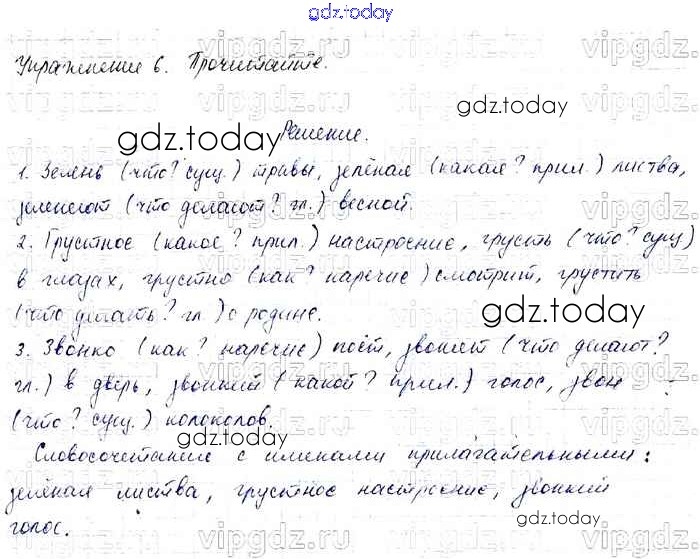 gdz.today
Упражнение 6. Прочитайте.
Решение.
1. Зелень (что? сущ.) травы, зелёная (какая? прил.) листва,
зеленеют (что делают? гл.) весной.
2. Грустное (какое? прил.) настроение, грусть (что? сущ)
в глазах, грустно (как? наречие) смотрит, грустить
(что делать? гл) о родине.
3. Звонко (как? наречие) поёт, звонят (что делают?
гл.) в дверь, звонкий (какой? прил.) голос, звон
(что? сущ.) колоколов.
Словосочетание с именами прилагательными:
зелёная листва, грустное настроение, звонкий
голос.
gdz.today
gdz.today
gdz.today
gdz.today
gdz.today